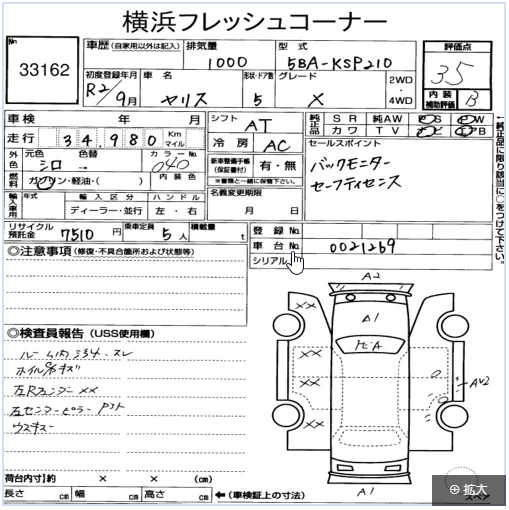 横浜フレッシュコーナー
No
33162
車歴 (自家用以外は記入)
排気量
1000
型式
5BA-KSP210
評価点
3.5
初度登録年月
R2/9月
車名
ヤリス
形状・ドア数
5
グレード
X
2WD
・
4WD
内装
補助評価
B
車検 年 月
走行 34,980 Km マイル
シフト
AT
冷房
AC
純正品
SR 純AW PS PW
カワ TV ナビ エアB
外色
元色
シロ
色替
カラーNo
040
燃料
ガソリン・軽油・( )
内装色
新車整備手帳
(保証書付)
有・無
※書類と一緒に保管下さい。
セールスポイント
バックモニター
セーフティセンス
輸入車用
年式
輸入区分
ディーラー・並行
ハンドル
左・右
名義変更期限
月 日
リサイクル預託金
7510円
乗車定員
5人
積載量
t
登録No.
車台No.
0021269
シリアル
←純正品に限り該当に○をつけて下さい。
◎注意事項 (修復・不具合箇所および状態等)
◎検査員報告 (USS使用欄)
ホイルキズ
左Rフェンダー XX
ウスキズ
A2
A1
XX
XX
XX
A1
荷台内寸)約 × × (cm)
長さ cm 幅 cm 高さ cm
←(車検証上の寸法)
スペア
拡大